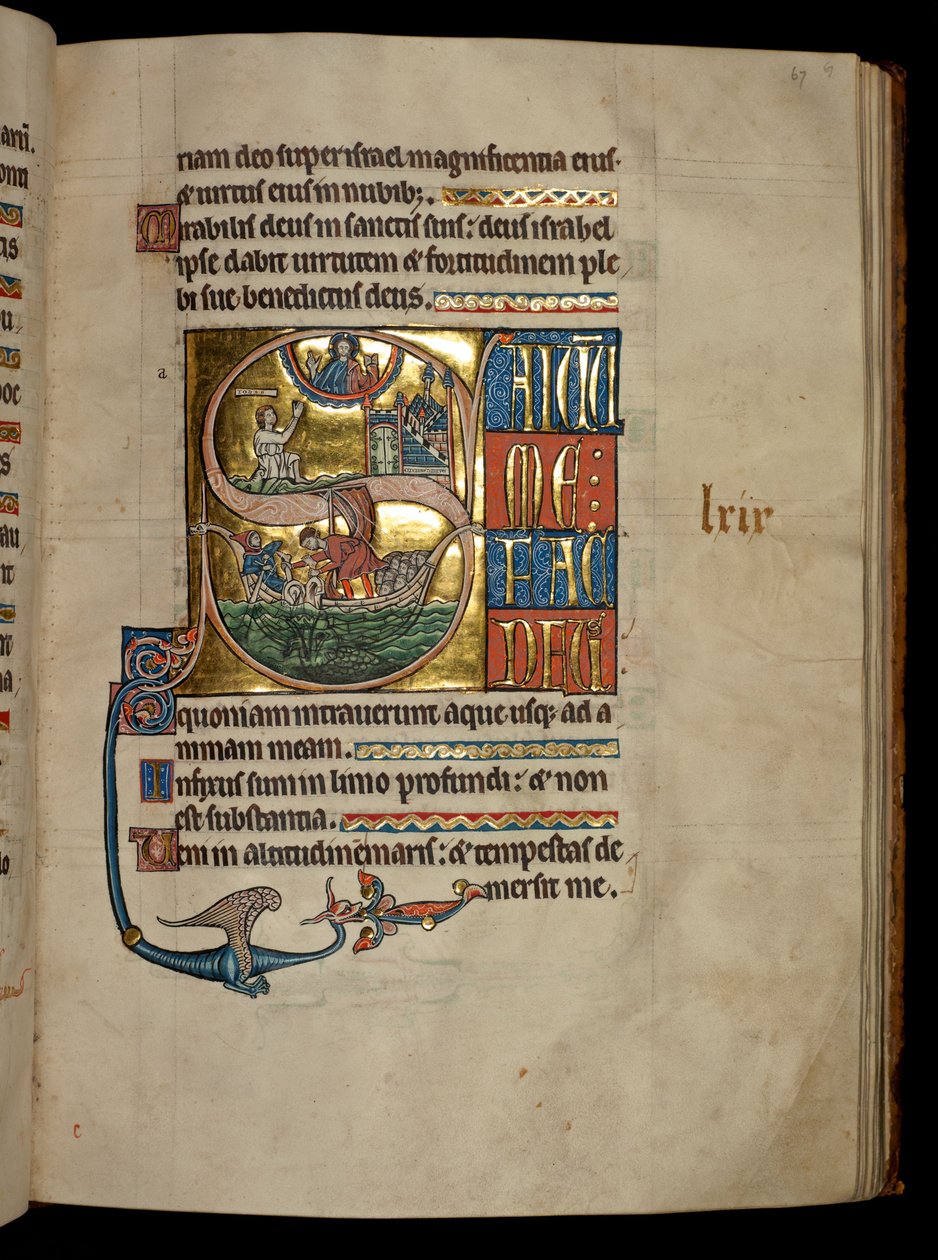 67
riam deo super israel magnificentia eius·
& uirtus eius in nubib;.
Mirabilis deus in sanctis suis: deus israhel
ipse dabit uirtutem & fortitudinem ple
bi sue benedictus deus.
a
SALUŪ
ME
FAC
DEUS
lxix
quoniam intrauerunt aque usq; ad a
nimam meam.
Infixus sum in limo profundi: & non
est substantia.
Ueni in altitudinē maris: & tempestas de
mersit me.
c